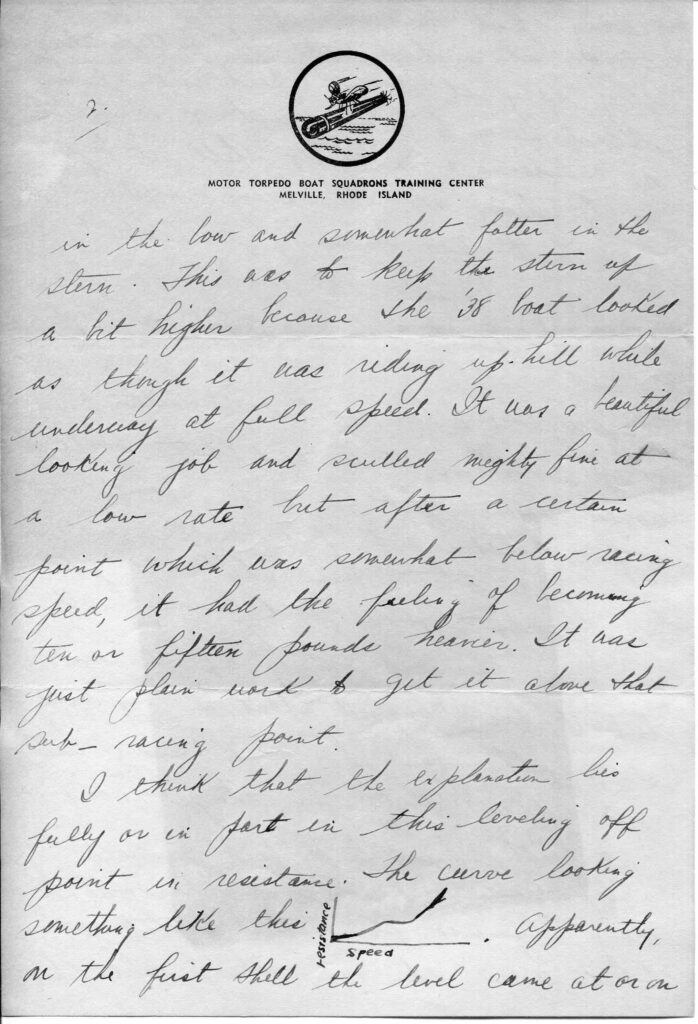 2.
MOTOR TORPEDO BOAT SQUADRONS TRAINING CENTER
MELVILLE, RHODE ISLAND
in the bow and somewhat fatter in the
stern. This was to keep the stern up
a bit higher because the '38 boat looked
as though it was riding up-hill while
underway at full speed. It was a beautiful
looking job and sculled mighty fine at
a low rate but after a certain
point which was somewhat below racing
speed, it had the feeling of becoming
ten or fifteen pounds heavier. It was
just plain work to get it above that
sub-racing point.
I think that the explanation lies
fully or in part in this leveling off
point in resistance. The curve looking
something like this resistance speed . Apparently,
on the first shell the level came at or on